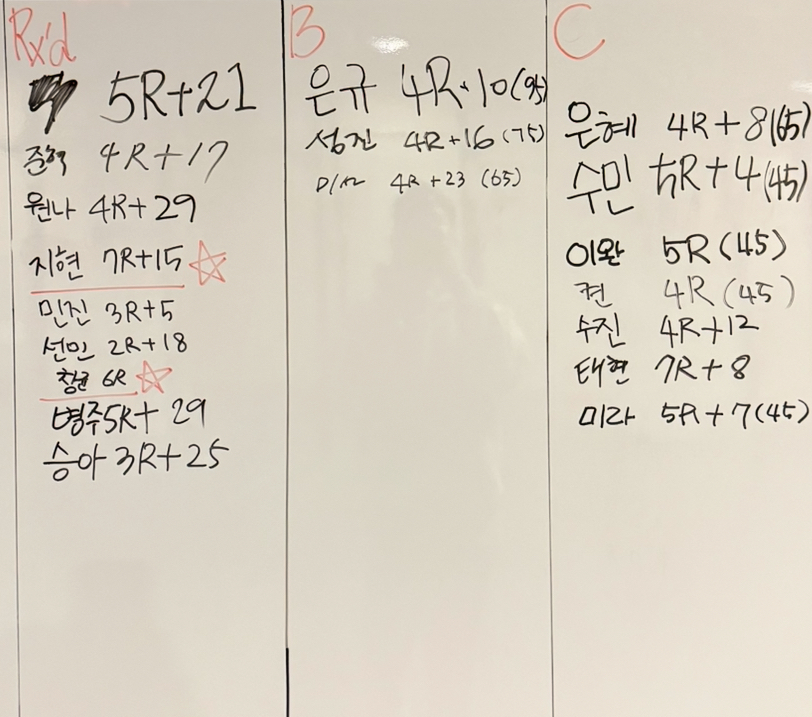 Rx'd
5R+21
준혁 4R+17
원나 4R+29
지현 7R+15
민진 3R+5
선민 2R+18
창균 6R
병주 5R+29
승아 3R+25
B
은규 4R+10(95)
성진 4R+16(75)
4R+23 (65)
C
은혜 4R+8(65)
수민 5R+4(45)
이완 5R(45)
켠 4R(45)
수진 4R+12
태현 7R+8
미라 5R+7(45)